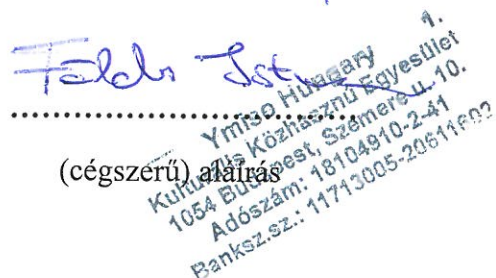 Földi Ist
........................................
(cégszerű) aláírás
1.
Ymiso Hungary
Kulturális Közhasznú Egyesület
1054 Budapest, Szemere u. 10.
Adószám: 18104910-2-41
Banksz.sz.: 11713005-20611602